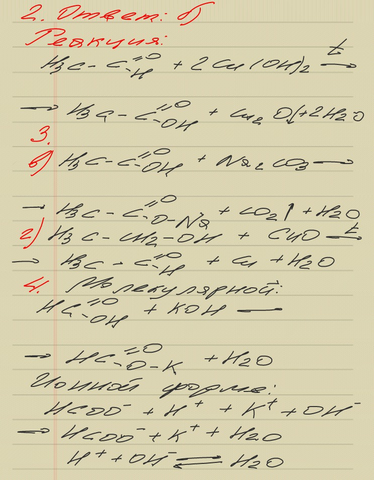 2. Ответ: б)
Реакция:
H₃C - C(=O)-H + 2Cu(OH)₂ —t→
→ H₃C - C(=O)-OH + Cu₂O↓ + 2H₂O
3.
в) H₃C - C(=O)-OH + Na₂CO₃ →
→ H₃C - C(=O)-O-Na + CO₂↑ + H₂O
г) H₃C - CH₂ - OH + CuO —t→
→ H₃C - C(=O)-H + Cu + H₂O
4. Молекулярной:
HC(=O)-OH + KOH —
→ HC(=O)-O-K + H₂O
Ионной форме:
HCOO⁻ + H⁺ + K⁺ + OH⁻
→ HCOO⁻ + K⁺ + H₂O
H⁺ + OH⁻ ⇄ H₂O